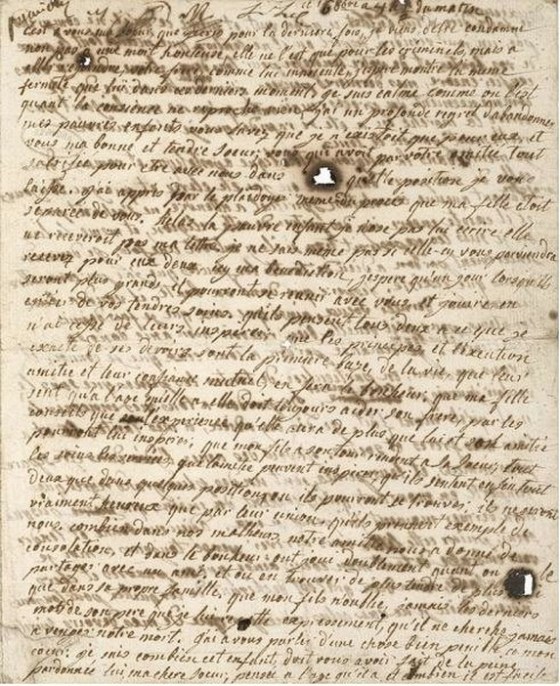 ce 16 8bre a 4 h du matin
c'est a vous ma soeur, que j'ecris pour la derniere fois, je viens d'etre condamné
non pas a une mort honteuse, elle ne l'est que pour les criminels, mais a
aller rejoindre votre frere, comme lui innocente, j'espere montrer la meme
fermeté que lui dans ces derniers moments. je suis calme comme on l'est
quand la consience ne reproche rien, j'ai un profonde regret d'abandonner
mes pauvres enfants vous savez que je n'existoit que pour eux, et
vous ma bonne et tendre soeur, vous qui avez par votre amitié tout
sacrifié pour etre avec nous dans quelle position je vous
laisse, j'ai appris par le plaidoyer meme du proces que ma fille etoit
separée de vous. helas la pauvre enfant je n'ose pas lui ecrire elle
ne receveroit pas ma lettre je ne sais meme pas si celle-ci vous parviendra
recevez pour eux deux icy ma benediction. j'espere qu'un jour lorsqu'ils
seront plus grand, il pourront se reunir avec vous, et jouire en
entier de vos tendres soins. qu'ils pensent tous deux a ce que je
n'ai cessé de leurs inspirer, que les principes et l'execution
exacte de ses devoirs sont la premiere baze de la vie, que leur
amitié et leur confiance mutuel, en fera le bonheur, que ma fille
sent qu'a l'age qu'elle a elle doit toujours aider son frere, par les
conseils que l'experience qu'elle aura de plus que lui et son amitié
pourront lui inspirer, que mon fils a son tour rendent a sa soeur, tout
les soins, les services, que l'amitié peuvent inspirer, qu'ils sentent enfin tout
deux que dans quelque position ou ils pourront se trouver, ils ne seront
vraiment heureux que par leur union, qu'ils prennent exemple de
nous, combien dans nos malheurs notre amitié nous a donné de
consolation, et dans le bonheur ont jouie doublement quand on le
partager avec un ami, et ou en trouver de plus tendre de plus
que dans sa propre famille, que mon fils n'oublie jamais les derniers
mots de son pere que je lui repette expressement, qu'il ne cherche jamais
a venger notre mort. j'ai a vous parler d'une chose bien penible a mon
coeur, je sais combien cet enfant, doit vous avoir fait de la peine
pardonnez lui ma chere soeur, pensez a l'age qu'il a, et combien il est facile